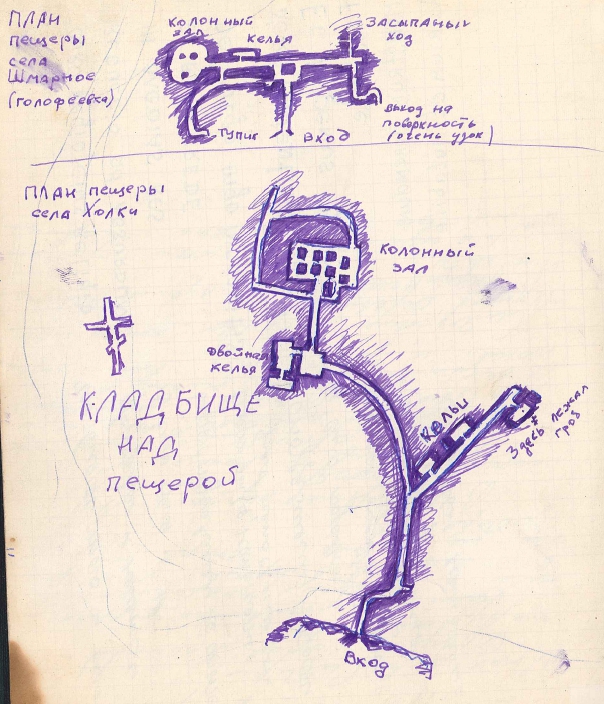 ПЛАН
пещеры
села
Шмарное
(голофеевка)
КОЛОННЫЙ
ЗАЛ
КЕЛЬЯ
ЗАСЫПАНЫЙ
ХОД
ТУПИК
ВХОД
ВЫХОД НА
ПОВЕРХНОСТЬ
(ОЧЕНЬ УЗОК)
ПЛАН пещеры
села Холки
КОЛОННЫЙ
ЗАЛ
ДВОЙНАЯ
КЕЛЬЯ
КЛАДБИЩЕ
НАД
пещерой
КЕЛЬИ
Здесь лежал
гроб
Вход